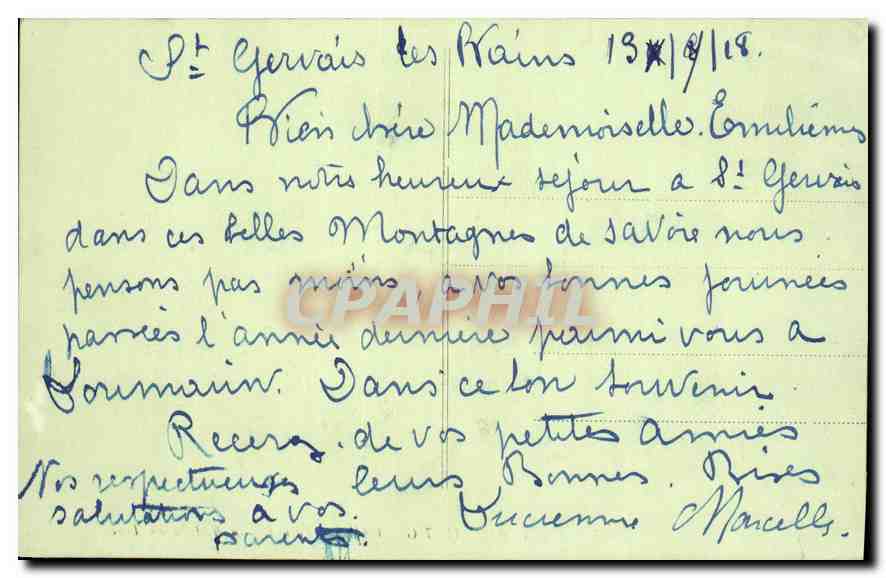 St Gervais les Bains 13/8/18.
Bien chère Mademoiselle.
Dans notre heureux séjour a St Gervais
dans ces belles Montagnes de savoie nous
pensons pas moins a vos bonnes journées
passées l'année dernière parmi vous a
Dans ce bon souvenir
Recevez de vos petites amies
leurs Bonnes Bises
Nos respectueuses
salutations a vos
parents.
Lucienne Marcelle.
CPAPHIL